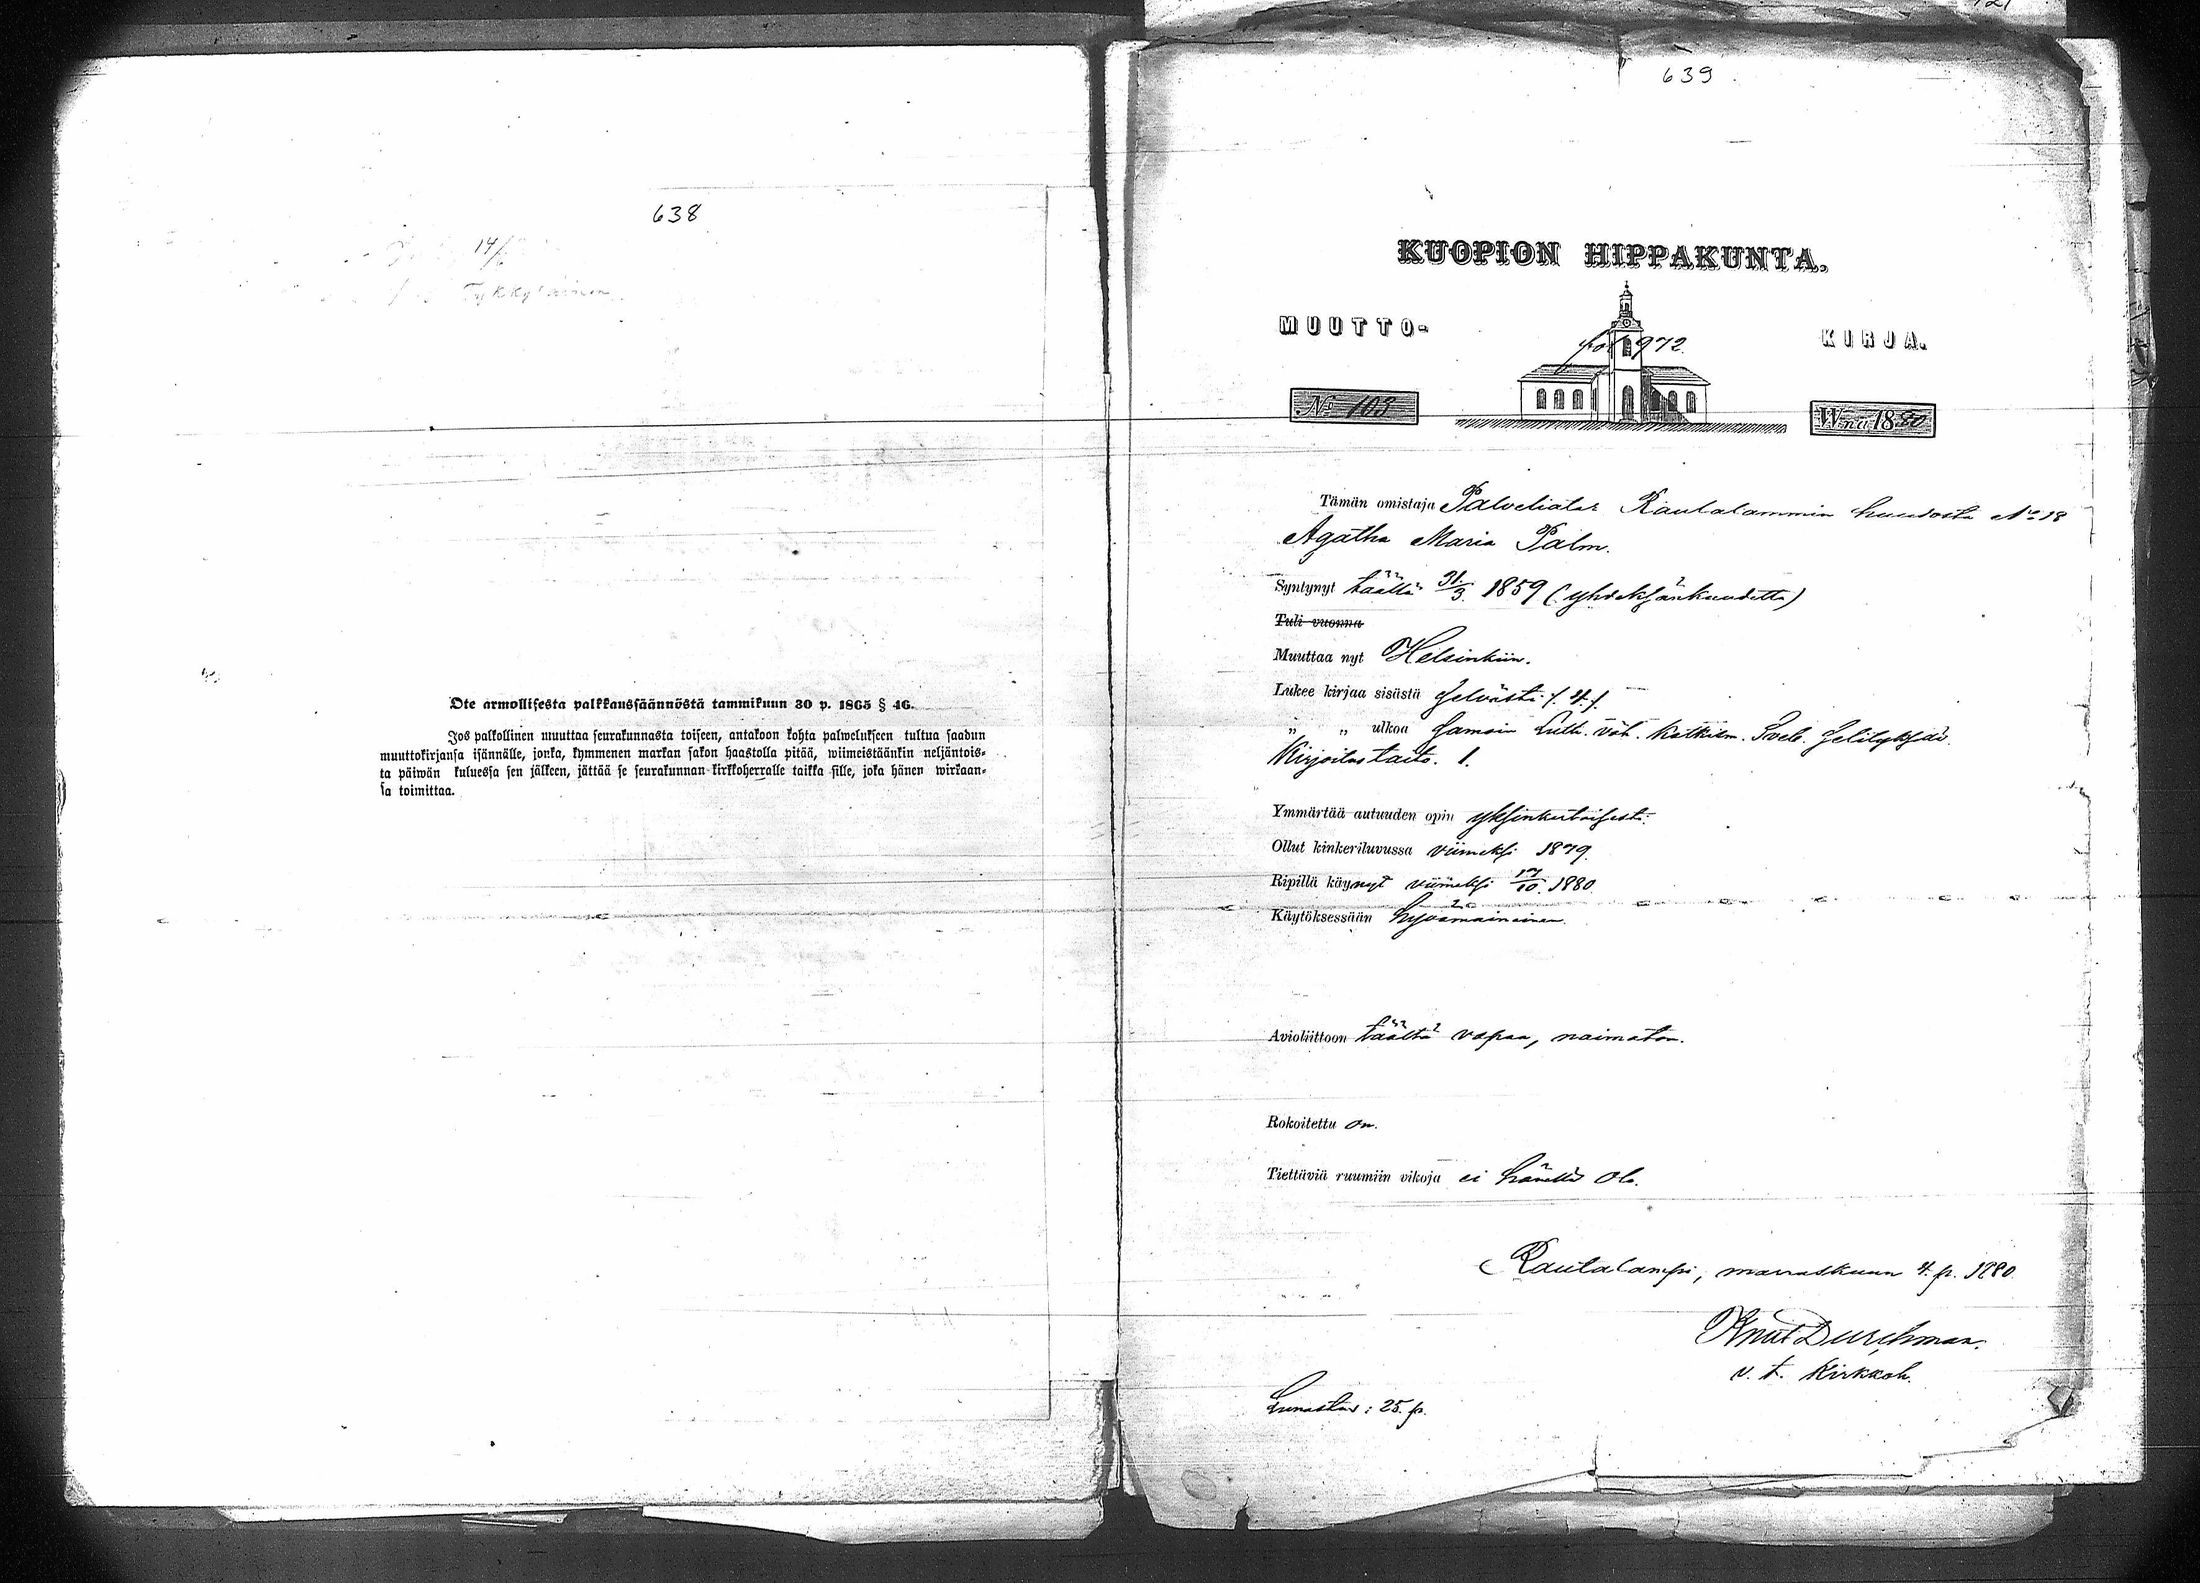 638
14/6
Tykkyläinen
Ote armollisesta palkkaussäännöstä tammikuun 30 p. 1865 § 46.
Jos palkollinen muuttaa seurakunnasta toiseen, antakoon kohta palwelukseen tultua saadun
muuttokirjansa isännälle, jonka, kymmenen markan sakon haastolla pitää, wiimeistäänkin neljäntois-
ta päiwän kuluessa sen jälkeen, jättää se seurakunnan kirkkoherralle taikka sille, joka hänen wirkaan-
sa toimittaa.
121
639
KUOPION HIPPAKUNTA.
MUUTTO-
KIRJA.
fol 972.
No 103
W:na 1880
Tämän omistaja Palveliatar Rautalammin kuudosta No 18
Agatha Maria Palm.
Syntynyt täällä 31/3. 1859 (yhdeksänkuudetta)
Tuli vuonna
Muuttaa nyt Helsinkiin.
Lukee kirjaa sisästä selvästi (4.)
„ „ ulkoa samoin Luth. väh. katkism. Sveb. selityksiä.
Kirjoitustaito. 1.
Ymmärtää autuuden opin yksinkertaisesti.
Ollut kinkeriluvussa viimeksi 1879.
Ripillä käynyt viimeksi 17/10. 1880
Käytöksessään hyvämainainen.
Avioliittoon täältä vapaa, naimaton.
Rokoitettu on.
Tiettäviä ruumiin vikoja ei hänellä ole.
Rautalampi, marraskuun 4. p. 1880.
Knut Durchman.
v. t. Kirkkoh.
Lunastus: 25. p.